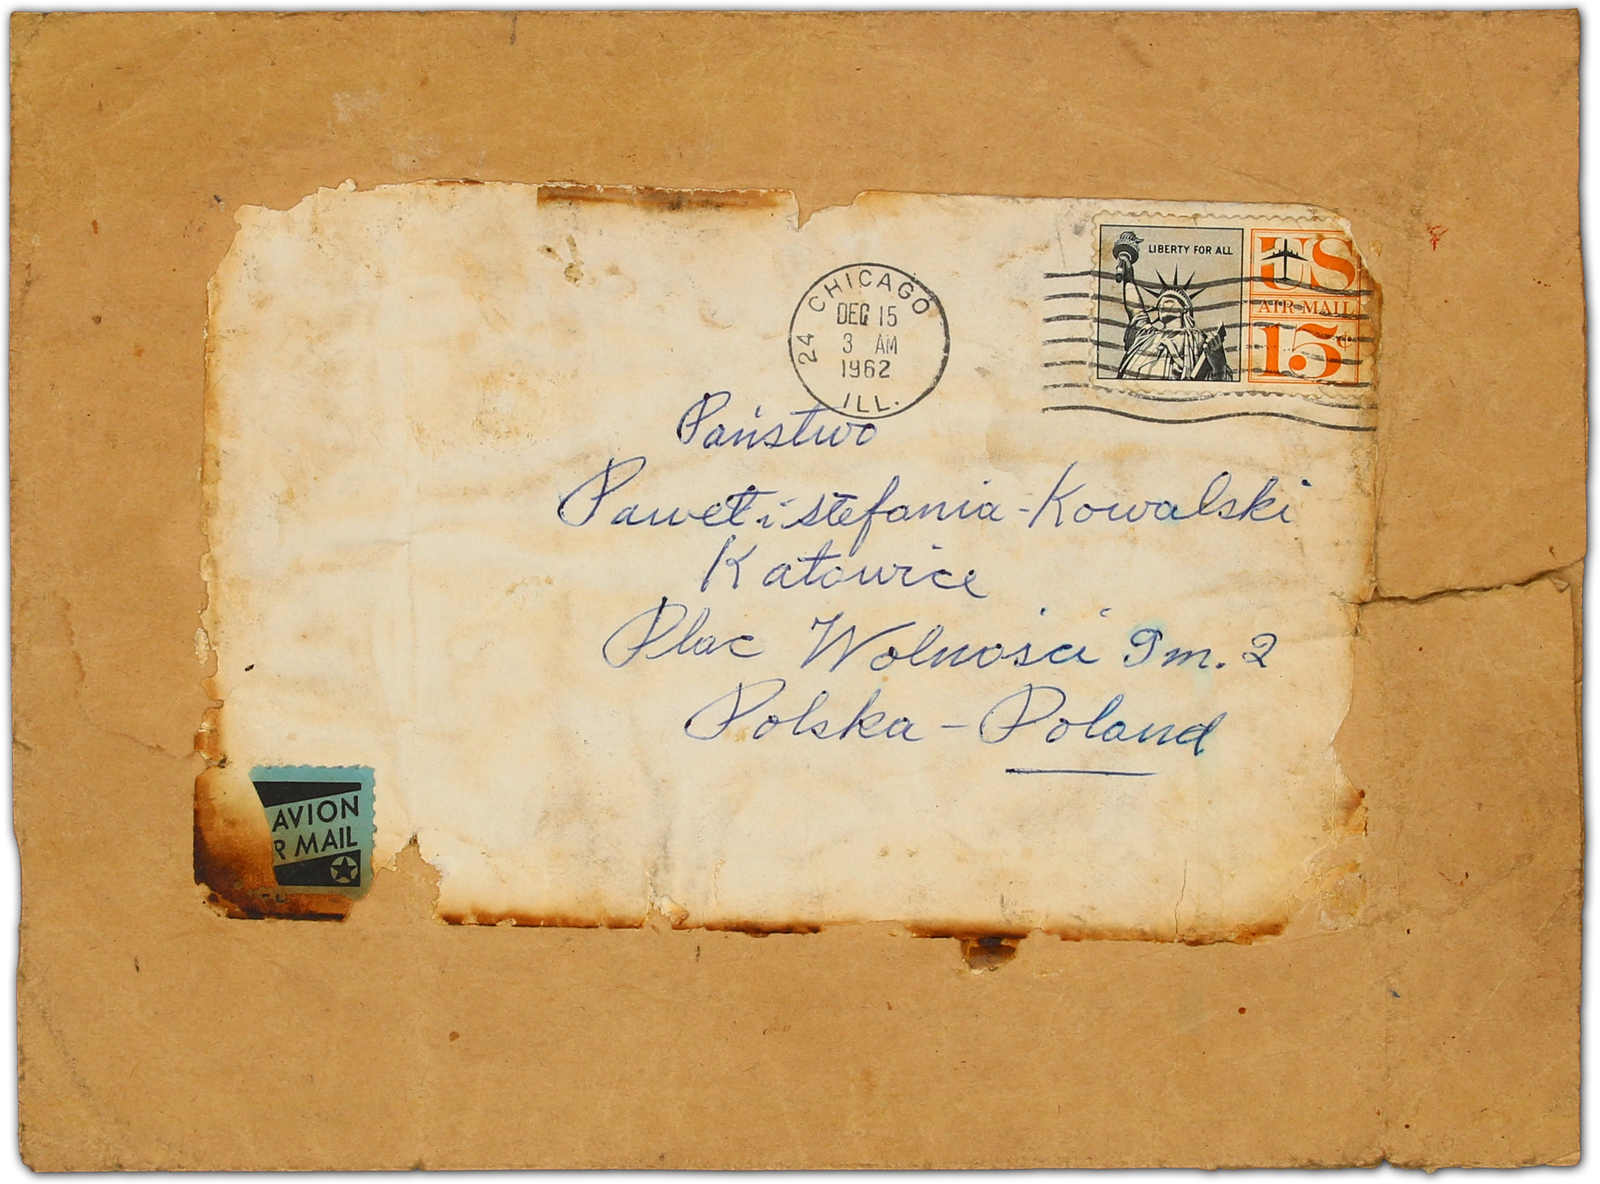 24 CHICAGO
DEC 15
3 AM
1962
ILL.
LIBERTY FOR ALL
US
AIR MAIL
15¢
Państwo
Paweł i Stefania - Kowalski
Katowice
Plac Wolności 9 m. 2
Polska - Poland
AVION
R MAIL